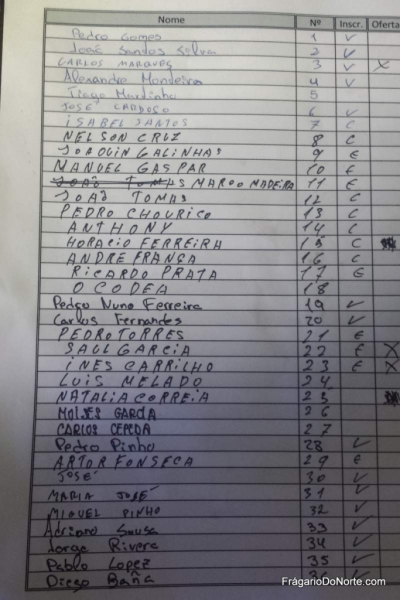 Nome Nº Inscr. Oferta
Pedro Gomes 1 ✓
José Santos Silva 2 ✓
CARLOS MARQUES 3 ✓ X
Alexandre Monteiro 4 ✓
Tiago Martinho 5
JOSÉ CARDOSO 6 ✓
ISABEL SANTOS 7 C
NELSON CRUZ 8 C
JOAQUIN GALINHAS 9 E
MANUEL GASPAR 10 E
MARCO MADEIRA 11 E
JOAÕ TOMAS 12 C
PEDRO CHOURICO 13 C
ANTHONY 14 C
HORACIO FERREIRA 15 C
ANDRE FRANÇA 16 C
RICARDO PRATA 17 E
O CODEA 18
Pedro Nuno Ferreira 19 ✓
Carlos Fernandes 20 ✓
PEDRO TORRES 21 E
SAUL GARCIA 22 E X
INES CARRILHO 23 E X
LUIS MELADO 24
NATALIA CORREIA 25
MOISES GARCIA 26
CARLOS CEPEDA 27
Pedro Pinho 28 ✓
ARTOR FONSECA 29 E
JOSÉ 30 ✓
MARIA JOSÉ 31 ✓
MIGUEL PINHO 32 ✓
Adriano Sousa 33 ✓
Jorge Rivera 34 ✓
Pablo Lopez 35 ✓
Diego Baña ✓
FrágarioDoNorte.com